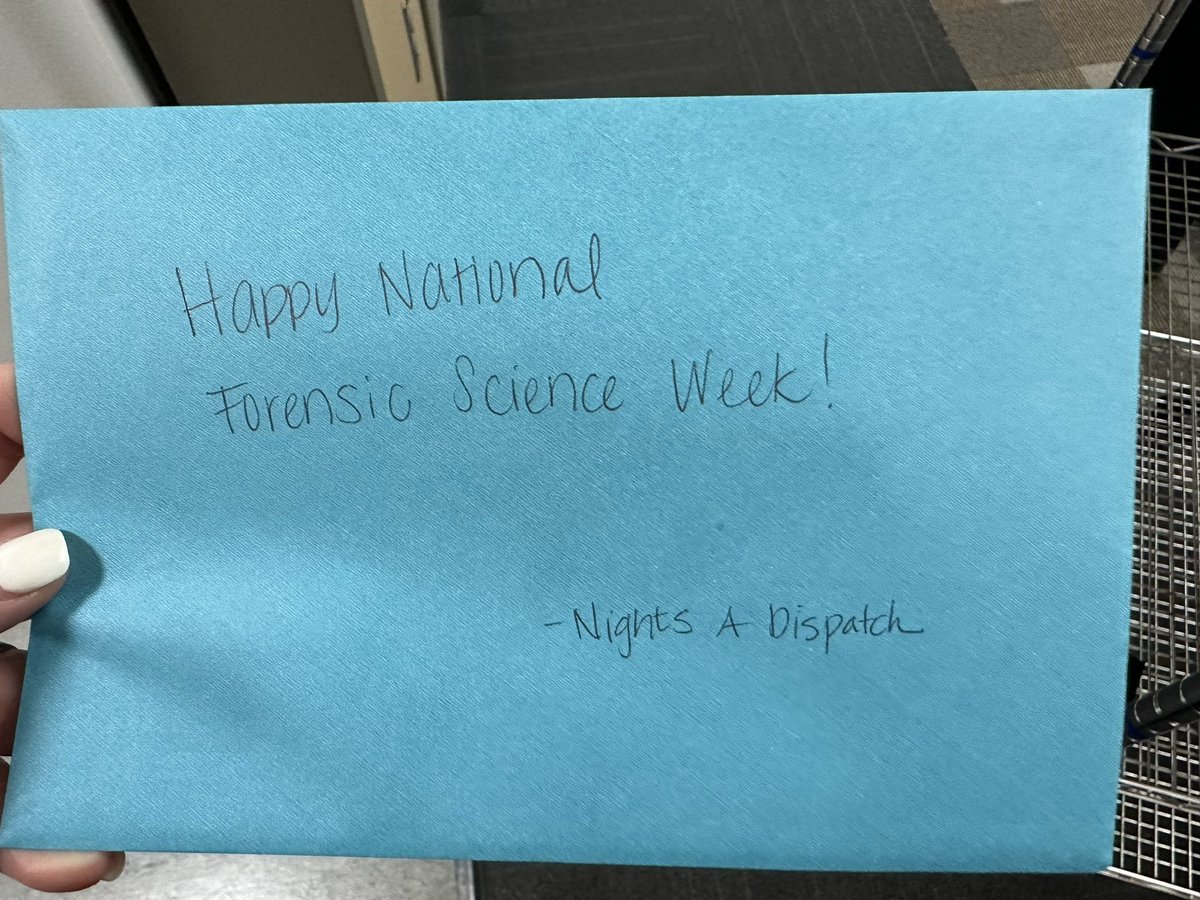 Happy National
Forensic Science Week!
- Nights A Dispatch